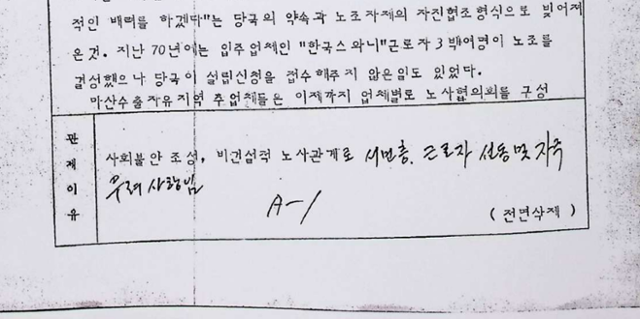 적인 배려를 하겠다"는 당국의 약속과 노조자제의 자진협조형식으로 빚어져
온것. 지난 70년에는 입주업체인 "한국스와니"근로자 3백여명이 노조를
결성했으나 당국이 설립신청을 접수해주지 않은일도 있었다.
마산수출자유지역 주업체들은 이제까지 업체별로 노사협의회를 구성
관제이유
사회불안 조성, 비건설적 노사관계로 서민층, 근로자 선동 및 자극
우려 사항임
A-1
(전면삭제)